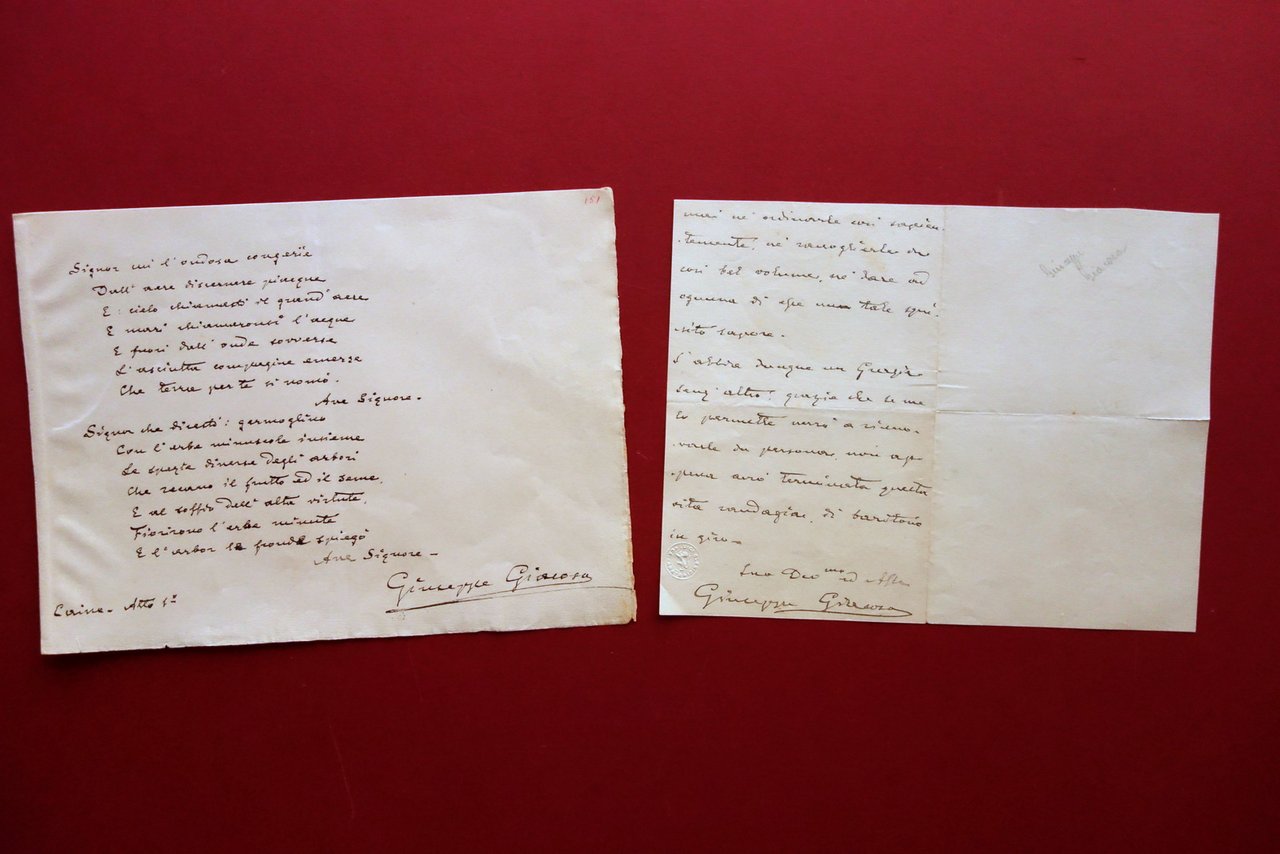 151
Signor cui l'ondosa congerie
Dall' aere discernere piacque
E: cielo chiamasti il grand' aere
E mari chiamaronsi l'acque
E fuori dall' onda sovversa
L'asciutta compagine emersa
Che terra per te si nomò.
Ave Signore -
Signor che dicesti: germoglino
Con l'erbe minuscole insieme
Le spezie diverse degli arbori
Che recano il frutto ed il seme,
E al soffio dell' alta virtute,
Fiorirono l'erbe minute
E l'arbor le fronde spiegò
Ave Signore -
Giuseppe Giacosa
Caino - Atto 1º
mai nè ordinarle così sapien-
temente, nè raccoglierle in
così bel volume, nè dare ad
ognuna di esse un tale squi-
sito sapore.
S'abbia dunque un Grazie
senz' altro! grazie che se me
lo permette verrò a rinno-
varle di persona, non ap-
pena avrò terminata questa
vita randagia, di baritono
in giro -
Suo Devmo ed Affo
Giuseppe Giacosa
Giacosa